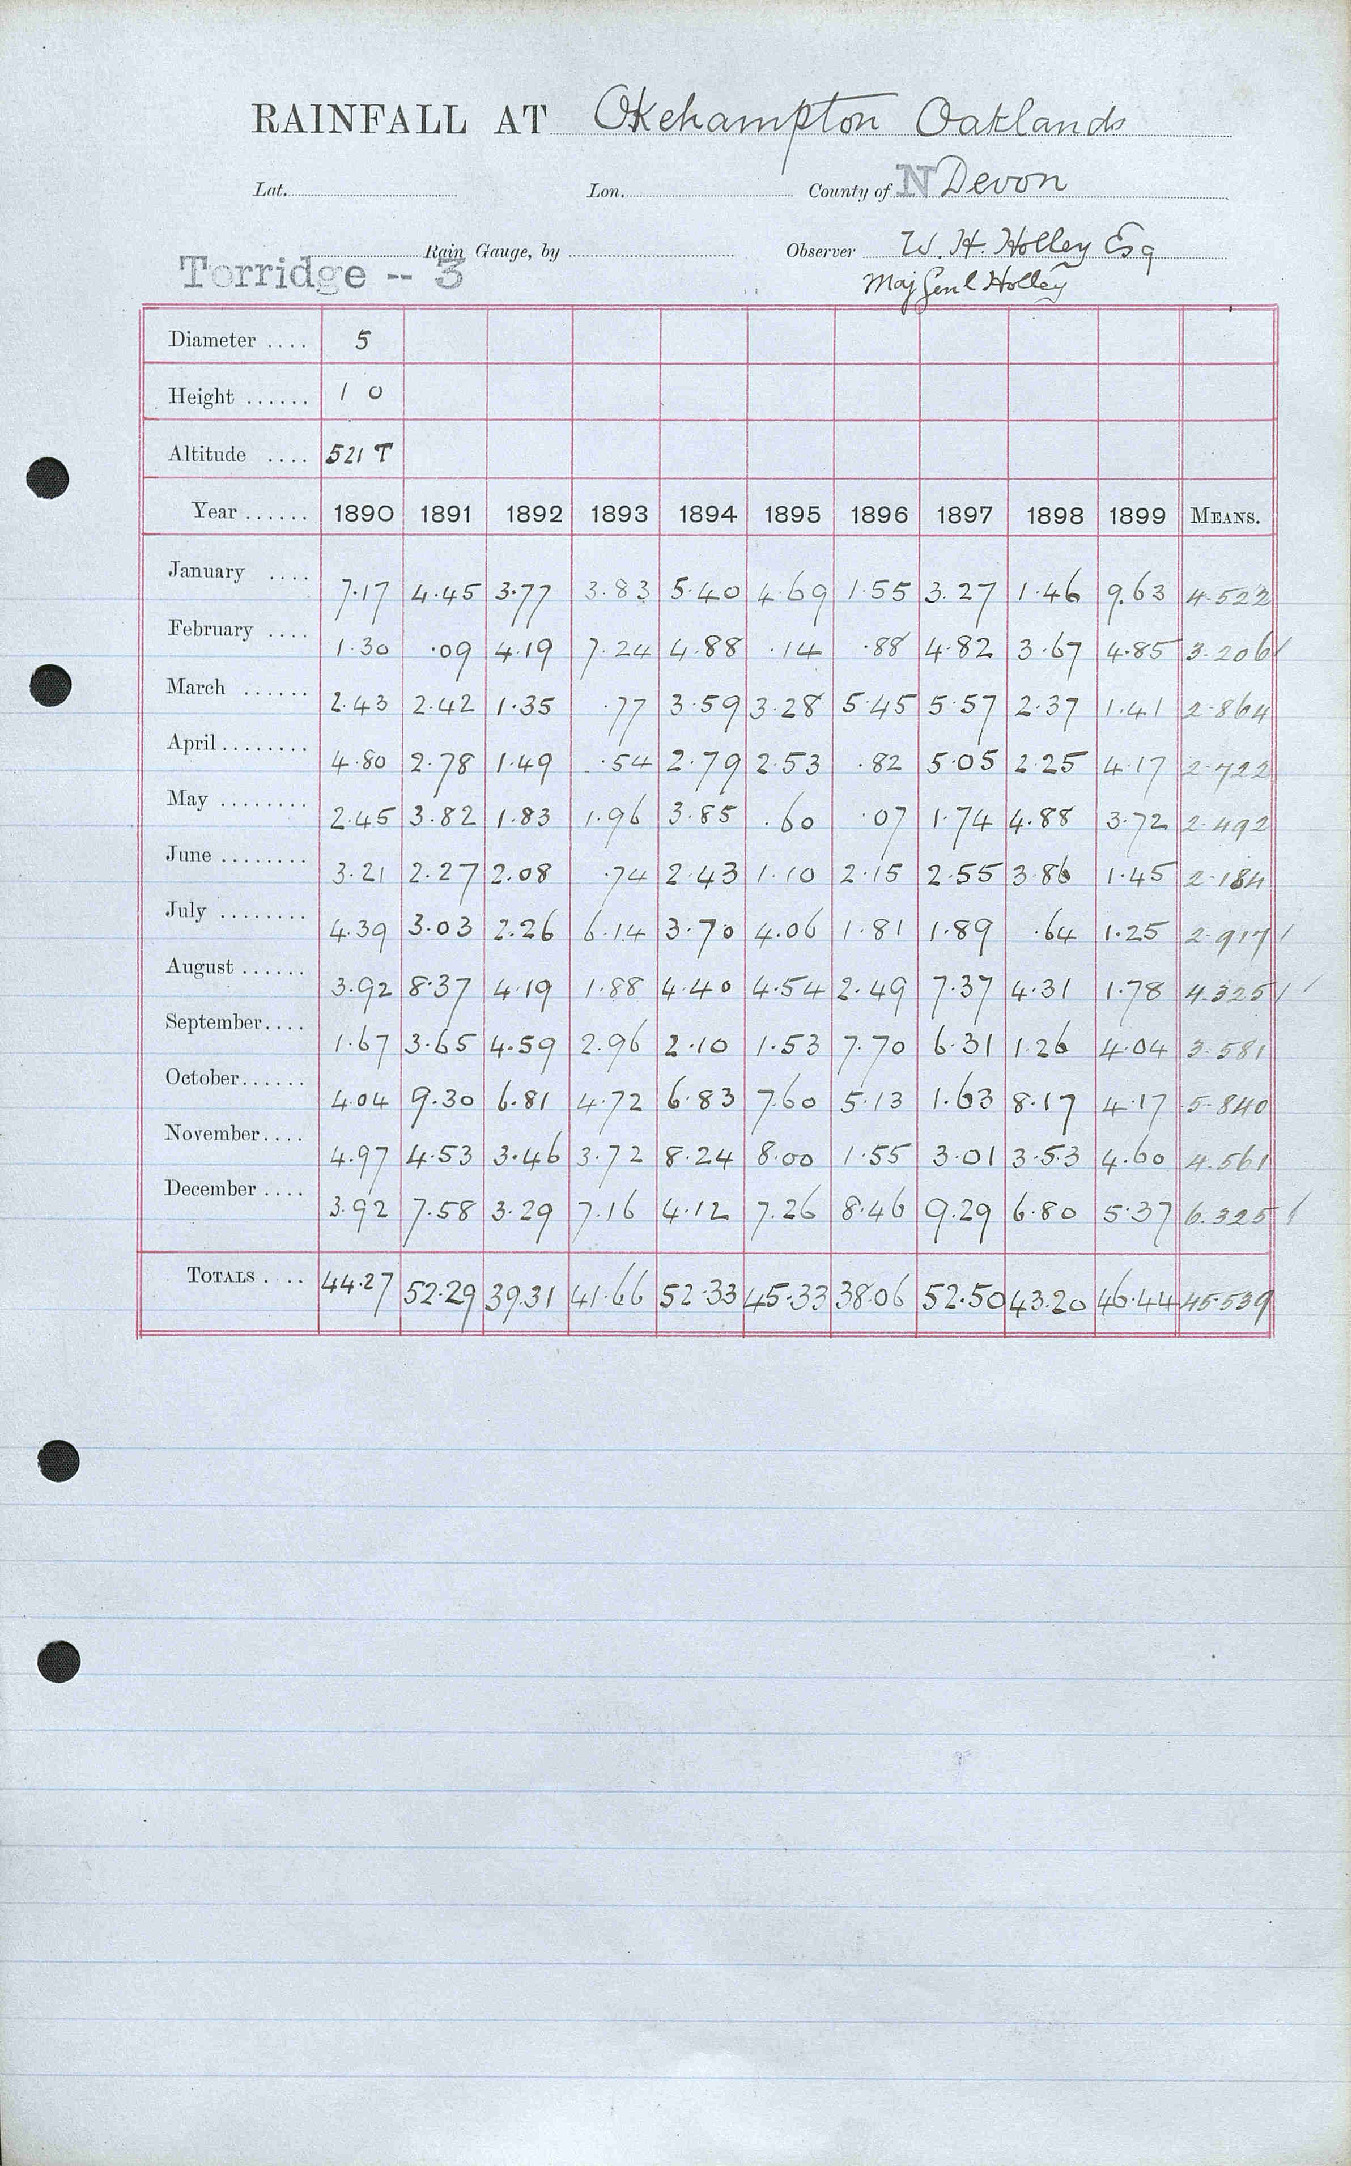 RAINFALL AT Okehampton Oaklands
Lat. Lon. County of N Devon
Rain Gauge, by Observer W. H. Holley Esq
Torridge -- 3 Maj Genl Holley
Diameter .... 5
Height ...... 1 0
Altitude .... 521 T
Year ...... 1890 1891 1892 1893 1894 1895 1896 1897 1898 1899 MEANS.
January .... 7.17 4.45 3.77 3.83 5.40 4.69 1.55 3.27 1.46 9.63 4.522
February .... 1.30 .09 4.19 7.24 4.88 .14 .88 4.82 3.67 4.85 3.206
March ...... 2.43 2.42 1.35 .77 3.59 3.28 5.45 5.57 2.37 1.41 2.864
April ........ 4.80 2.78 1.49 .54 2.79 2.53 .82 5.05 2.25 4.17 2.722
May ........ 2.45 3.82 1.83 1.96 3.85 .60 .07 1.74 4.88 3.72 2.492
June ........ 3.21 2.27 2.08 .74 2.43 1.10 2.15 2.55 3.86 1.45 2.184
July ........ 4.39 3.03 2.26 6.14 3.70 4.06 1.81 1.89 .64 1.25 2.917
August ...... 3.92 8.37 4.19 1.88 4.40 4.54 2.49 7.37 4.31 1.78 4.325
September .... 1.67 3.65 4.59 2.96 2.10 1.53 7.70 6.31 1.26 4.04 3.581
October ...... 4.04 9.30 6.81 4.72 6.83 7.60 5.13 1.63 8.17 4.17 5.840
November .... 4.97 4.53 3.46 3.72 8.24 8.00 1.55 3.01 3.53 4.60 4.561
December .... 3.92 7.58 3.29 7.16 4.12 7.26 8.46 9.29 6.80 5.37 6.325
TOTALS .... 44.27 52.29 39.31 41.66 52.33 45.33 38.06 52.50 43.20 46.44 45.539